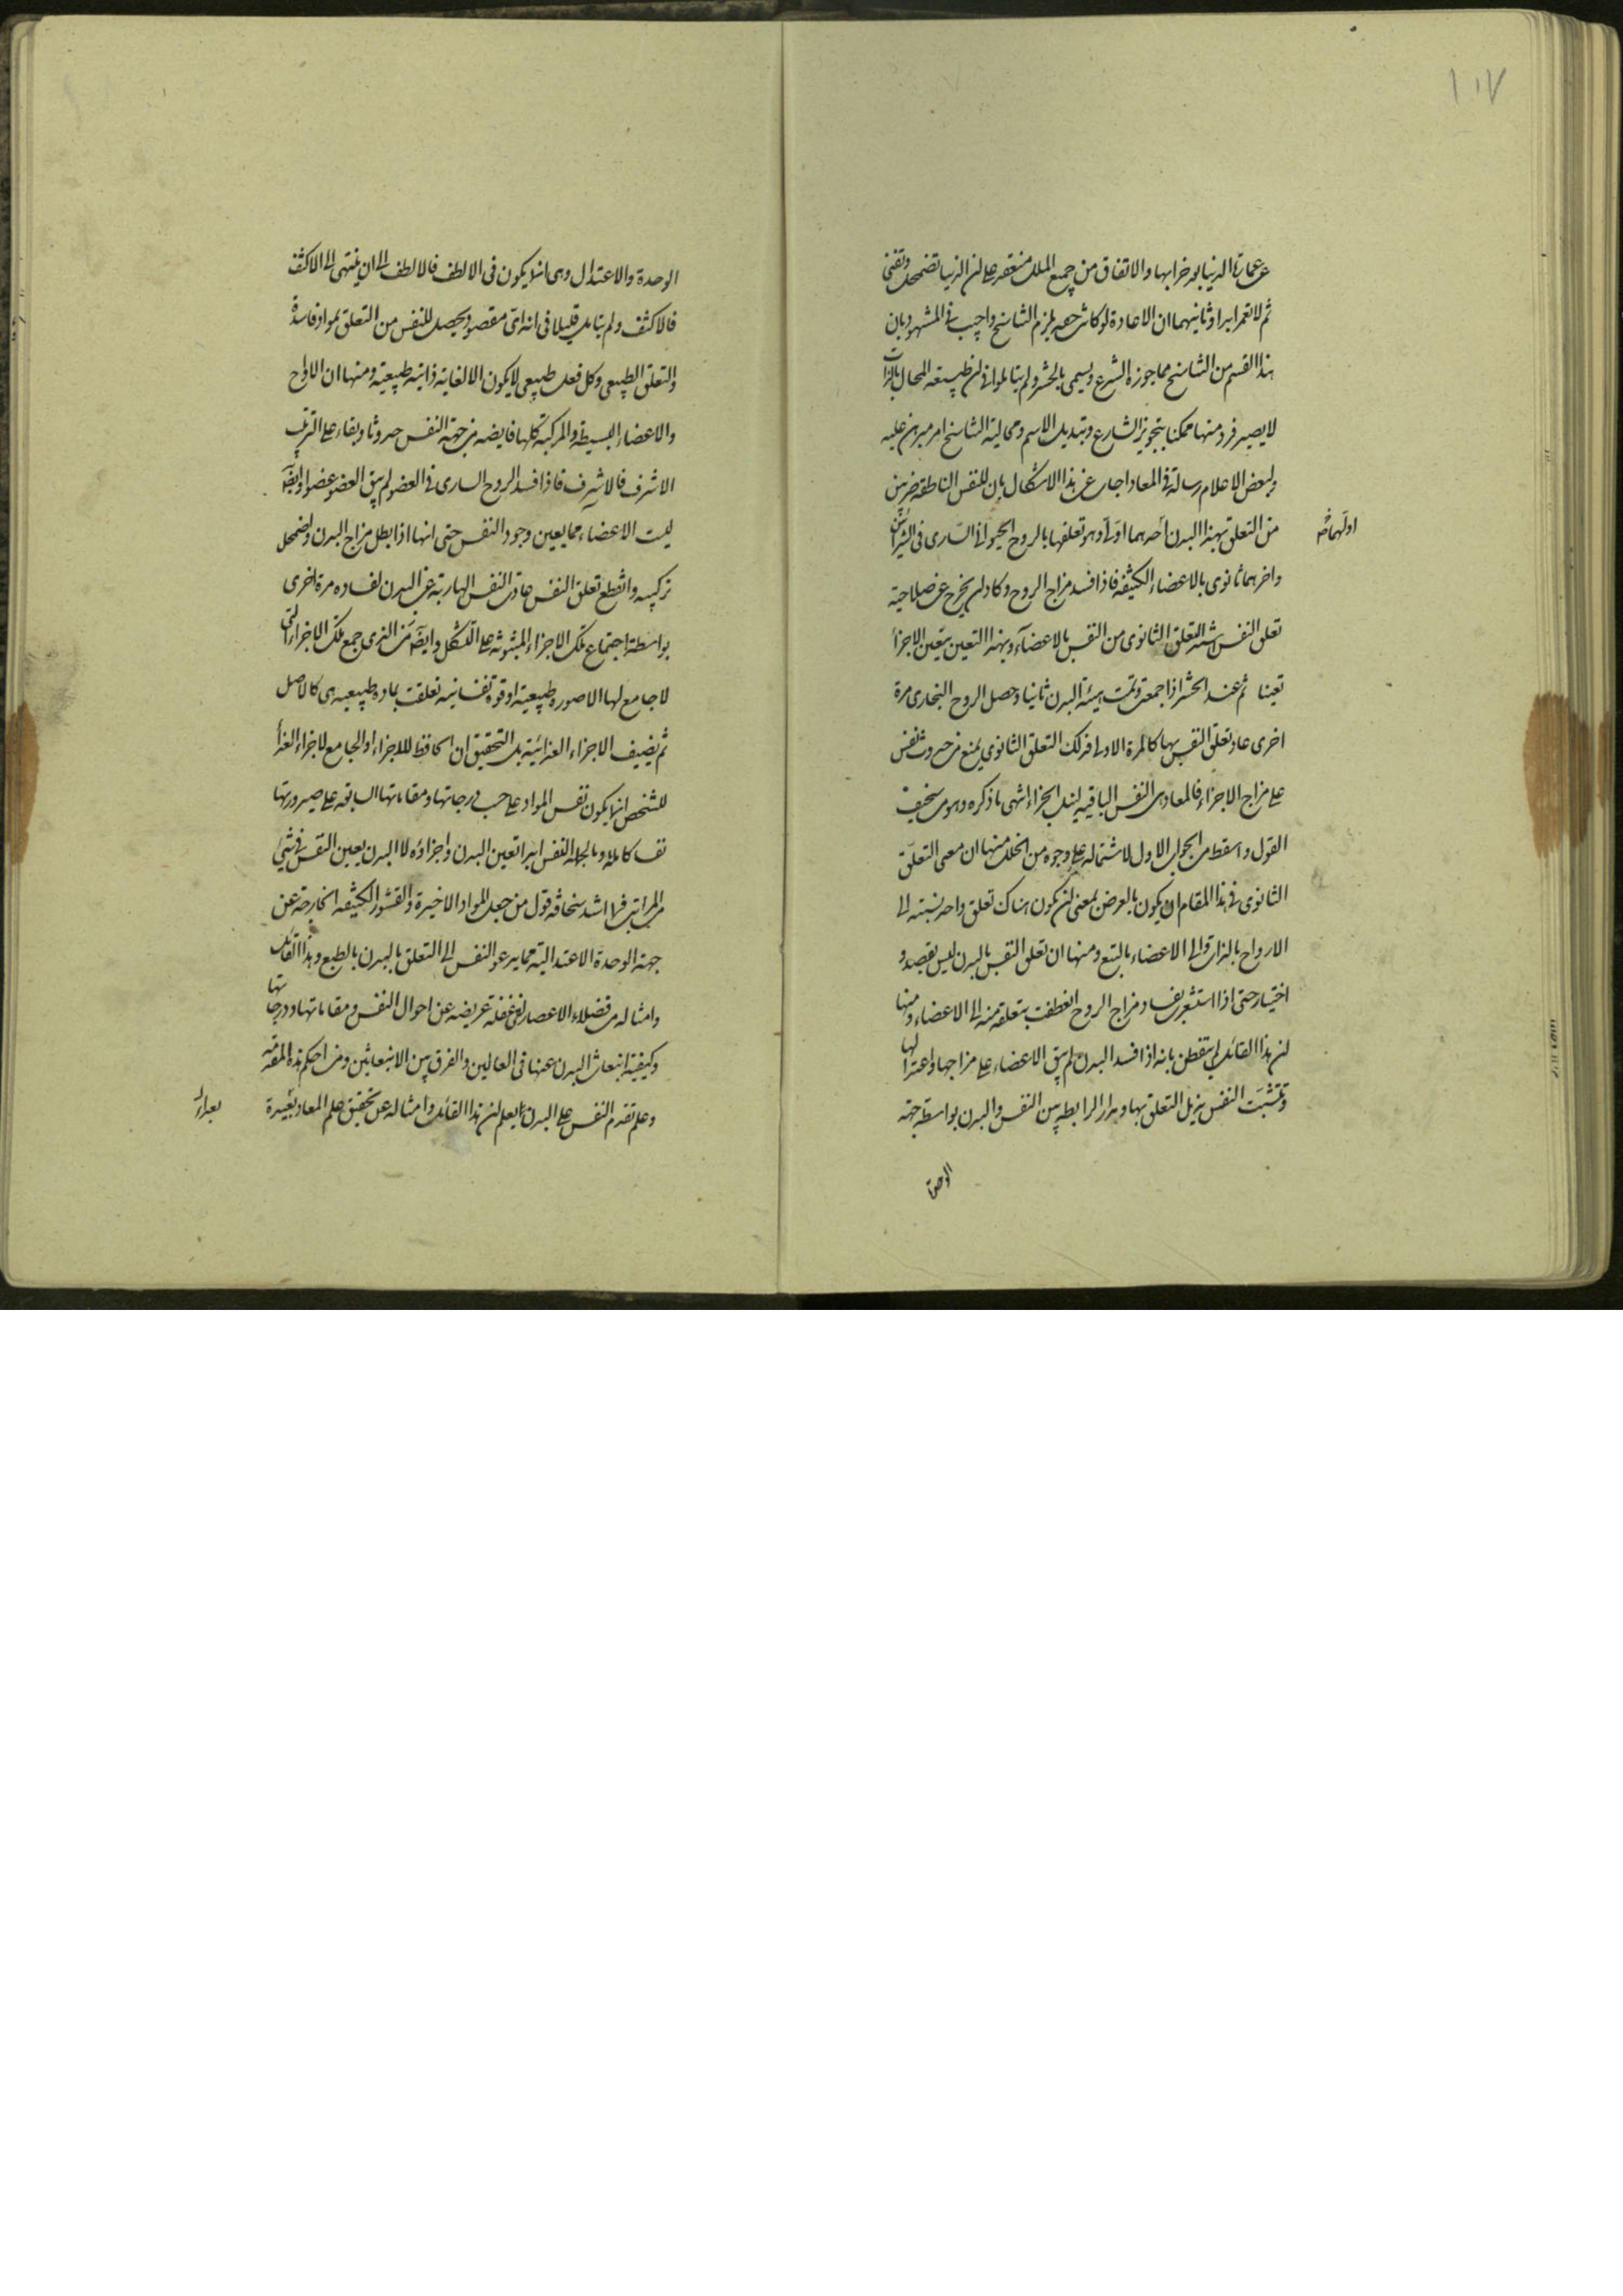 ١٠٧
عن عمارة الدنيا بعد خرابها والاتفاق من جميع الملل منعقد على ان الدنيا تضمحل وتفنى
ثم لا تعمر ابدا وثانيهما ان الاعادة لو كانت حقه يلزم التناسخ واجيب في المشهور بان
هذا القسم من التناسخ مما جوزه الشرع ويسمى بالحشر ولم يتاملوا في ان طبيعته المحال بالذات
لا يصير فرد منها ممكنا بتجويز الشارع وتبديل الاسم ومحالية التناسخ امر مبرهن عليه
ولبعض الاعلام رسالة في المعاد اجاب عن هذا الاشكال بان للنفس الناطقه ضربين
من التعلق بهذا البدن احدهما اولى وهو تعلقها بالروح الحيوانى السارى فى الشرائين
اولهما
واخرهما ثانوى بالاعضاء الكثيفه فاذا فسد مزاج الروح وكاد ان يخرج عن صلاحية
تعلق النفس اشتد التعلق الثانوى من النفس بالاعضآء وبهذا التعين يتعين الاجزا
تعينا ثم عند الحشر اذا جمعت وتمت هيئة البدن ثانيا وحصل الروح البخارى مرة
اخرى عاد تعلق النفس بها كالمرة الاولى فذلك التعلق الثانوى يمنع من حدوث نفس
على مزاج الاجزاء فالمعاد هى النفس الباقيه لنيل الجزاء انتهى ما ذكره وهو من سخيف
القول واسقط من الجواب الاول لاشتماله على وجوه من الخلل منها ان معى التعلق
الثانوى فى هذا المقام ان يكون بالعرض بمعنى ان يكون هناك تعلق واحد نسبته الى
الارواح بالذات والى الاعضاء بالتبع ومنها ان تعلق النفس بالبدن ليس بقصد و
اختيار حتى اذا استشعرت بفساد مزاج الروح انعطفت بتعلقه منه الى الاعضاء ومنها
ان هذا القائل لم يتفطن بانه اذا فسد البدن لم يبق الاعضاء على مزاجها واعتدالها
وتشبثت النفس بذيل التعلق بها ومدار الرابطه بين النفس والبدن بواسطة جهة
الوحدة
الوحدة والاعتدال وهى انما يكون فى الالطف فالالطف الى ان ينتهى الى الاكثف
فالاكثف ولم يتامل قليلا فى انه اى مقصود يحصل للنفس من التعلق بمواد فاسدة
والتعلق الطبيعى وكل فعل طبيعى لا يكون الا لغاية ذاتية طبيعية ومنها ان الارواح
والاعضاء البسيطة والمركبة كلها فايضه من جهة النفس حدوثا وبقاء على الترتيب
الاشرف فالاشرف فاذا فسد الروح السارى فى العضو لم يبق العضو عضوا وايضآ
ليست الاعضاء مما يعين وجود النفس حتى انها اذا بطل مزاج البدن واضمحل
تركيبه وانقطع تعلق النفس عادت النفس الهاربة عن البدن لفساده مرة اخرى
بواسطة اجتماع تلك الاجزاء المبثوثه على الشكل وايضآ من الذى جمع تلك الاجزاء التى
لا جامع لها الا صورة طبيعية او قوة نفسانيه تعلقت بماده طبيعيه هى كالاصل
ثم يضيف الاجزاء الغذائية بل التحقيق ان الحافظ للاجزاء او الجامع لاجزاء الغذا
للشخص انما يكون نفس المواد على حسب درجاتها ومقاماتها السابقه على صيرورتها
نفسا كاملة وبالجمله النفس ابدا تعين البدن واجزاؤه لا البدن يعين النفس فى شئ
من المراتب فما اشد سخافه قول من جعل المواد الاخيرة والقشور الكثيفه الخارجة عن
جهة الوحدة الاعتداليه مما يدعو النفس الى التعلق بالبدن بالطبع وهذا القائل
وامثاله من فضلاء الاعصار لفى غفلة عريضه عن احوال النفس ومقاماتها ودرجاتها
وكيفية انبعاث البدن عنها فى العالمين والفرق بين الانبعاثين ومن احكم هذه المقدمه
وعلم تقدم النفس على البدن يعلم ان هذا القائل وامثاله عن تحقيق علم المعاد بعيدة